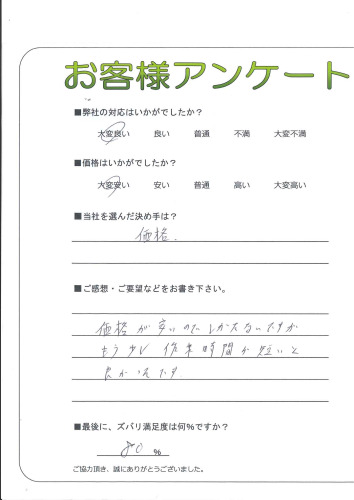 お客様アンケート
■弊社の対応はいかがでしたか?
大変良い 良い 普通 不満 大変不満
■価格はいかがでしたか?
大変安い 安い 普通 高い 大変高い
■当社を選んだ決め手は?
価格.
■ご感想・ご要望などをお書き下さい。
価格が安いのでしかたないですが
もう少し作業時間が短いと
良かったです.
■最後に、ズバリ満足度は何%ですか?
80 %
ご協力頂き、誠にありがとうございました。